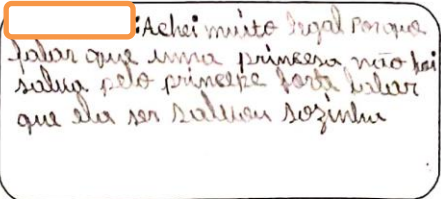 :Achei muito legal Porque
falar que uma princesa não foi
salva pelo principe forte falar
que ela ser salvou sozinha